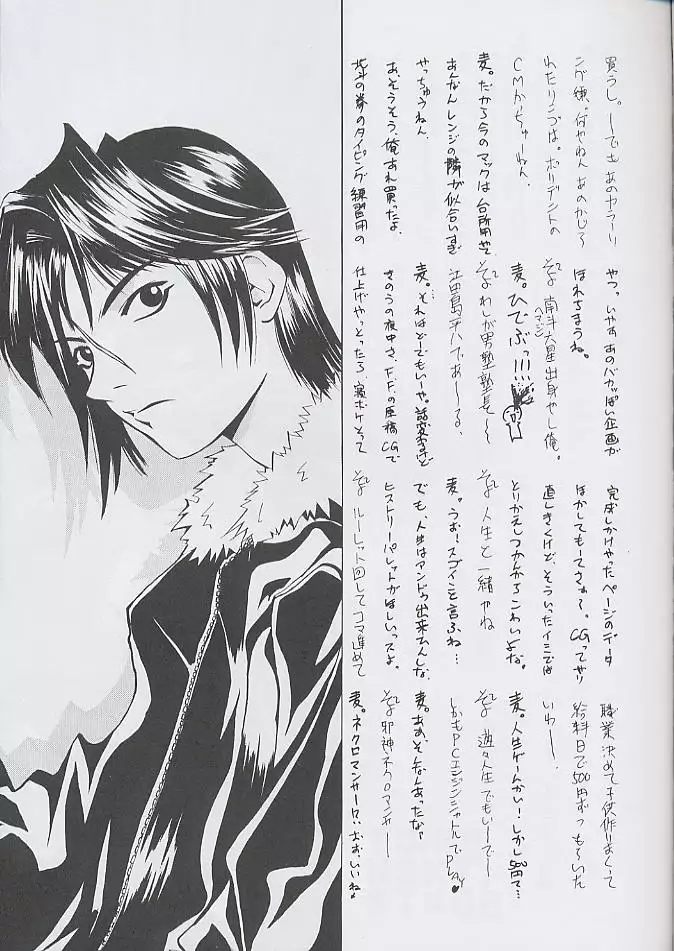 買うし。―でも あのヤラーリ
ング 練。何やねん あのかじら
れたリンゴは。ポリデントの
CMかっちゅーねん。
麦。だから今のマックは台所用やて
あんなんレンジの隣が似合いすぎ
やっちゅうねん。
あ、そうそう、俺あれ買ったよ。
北斗の拳のタイピング練習用の
やつ。いやすあのバカっぽい企画が
ほれちまうね。
そよ 南斗六星出身やし俺。
ヘマジン
麦。ひでぶっ!!!
そよ わしが男塾塾長〜
江田島平八であ〜る。
麦。それはどーでもいーや。話変るけど
きのうの夜中さ、F.F.の原稿CGで
仕上げやっとったら、寝ボケとって
完成しかけやったページのデータ
ほかしてもーてさぁ〜。CGってやり
直しきくけど、そういったイミでは
とりかえしつかんからこわいよな。
そよ 人生と一緒やね
麦。うお!スゴイこと言ふね…
でも、人生はアンドゥ出来へんしな、
ヒストリーパレットがほしいっスよ。
そよ ルーレット回してコマ進めて
職業決めて子供作りまくって
給料日で500円ずつもらいた
いわー。
麦。人生ゲームかい!しかし500円て…
そよ 遊々人生でもいーでー
しかもPCエンジンシャトルでPlay♥
麦。あぁそんなんあったな。
そよ 邪神ネクロマンサー
麦。ネクロマンサー!?、おおいいね♪